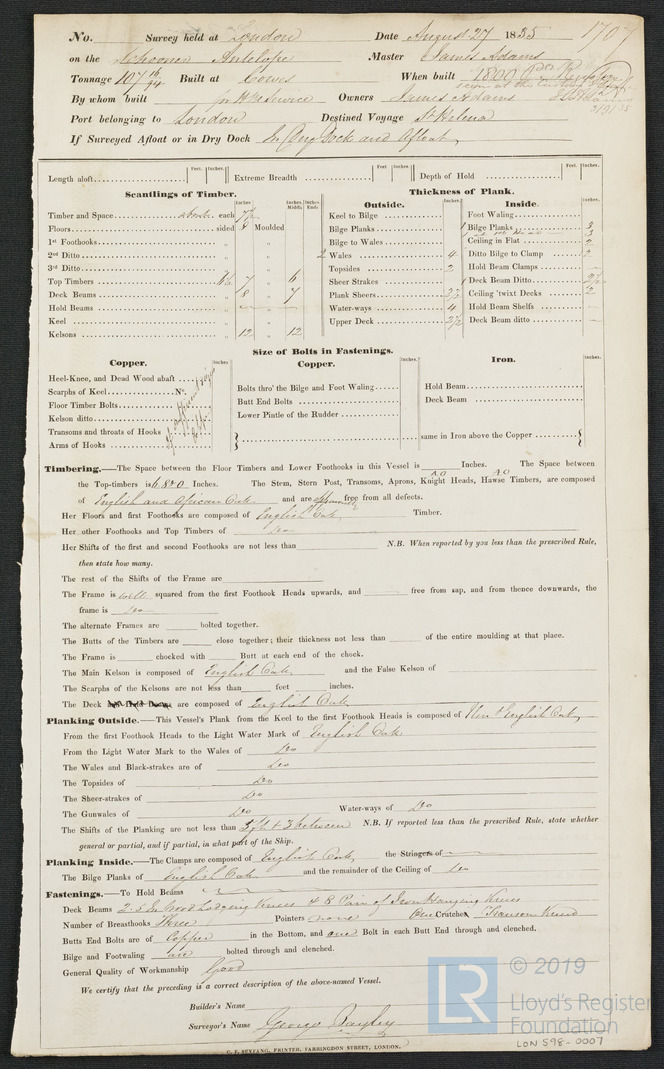 No. Survey held at London Date August 27 1835 1707
on the Schooner Antelope Master James Adams
Tonnage 107 16/94 Built at Cowes When built 1800
By whom built for H M Service Owners James Adams
Port belonging to London Destined Voyage St Helena
If Surveyed Afloat or in Dry Dock In Dry Dock and Afloat
Length aloft Feet. Inches. Extreme Breadth Feet. Inches. Depth of Hold Feet. Inches.
Scantlings of Timber.
Inches Inches Middle. Inches End.
Timber and Space about each 7½
Floors sided 8 Moulded
1st Foothooks " "
2nd Ditto " "
3rd Ditto " "
Top Timbers 7 " 6
Deck Beams 8 " 7
Hold Beams " "
Keel " "
Kelsons 12 " 12
Thickness of Plank.
Outside.
Keel to Bilge
Bilge Planks
Bilge to Wales
Wales 4
Topsides 2
Sheer Strakes
Plank Sheers 2½
Water-ways 4
Upper Deck 2½
Inside.
Foot Waling
Bilge Planks 3
Ceiling in Flat 2
Ditto Bilge to Clamp
Hold Beam Clamps
Deck Beam Ditto 2½
Ceiling 'twixt Decks 2
Hold Beam Shelfs
Deck Beam ditto
Size of Bolts in Fastenings.
Copper. Inches
Heel-Knee, and Dead Wood abaft
Scarphs of Keel No.
Floor Timber Bolts
Kelson ditto
Transoms and throats of Hooks
Arms of Hooks
of different sizes
Copper. Inches.
Bolts thro' the Bilge and Foot Waling
Butt End Bolts
Lower Pintle of the Rudder
Iron. Inches.
Hold Beam
Deck Beam
same in Iron above the Copper
Timbering.—The Space between the Floor Timbers and Lower Foothooks in this Vessel is Inches. The Space between
the Top-timbers is Inches. The Stem, Stern Post, Transoms, Aprons, Knight Heads, Hawse Timbers, are composed
of English and African Oak and are apparently free from all defects.
Her Floors and first Foothooks are composed of English Oak Timber.
Her other Foothooks and Top Timbers of Do
Her Shifts of the first and second Foothooks are not less than N.B. When reported by you less than the prescribed Rule,
then state how many.
The rest of the Shifts of the Frame are
The Frame is well squared from the first Foothook Heads upwards, and free from sap, and from thence downwards, the
frame is Do
The alternate Frames are bolted together.
The Butts of the Timbers are close together; their thickness not less than of the entire moulding at that place.
The Frame is chocked with Butt at each end of the chock.
The Main Kelson is composed of English Oak and the False Kelson of
The Scarphs of the Kelsons are not less than feet inches.
The Deck are composed of English Oak
Planking Outside.—This Vessel's Plank from the Keel to the first Foothook Heads is composed of Elm & English Oak
From the first Foothook Heads to the Light Water Mark of English Oak
From the Light Water Mark to the Wales of Do
The Wales and Black-strakes are of Do
The Topsides of Do
The Sheer-strakes of Do
The Gunwales of Do Water-ways of Do
The Shifts of the Planking are not less than 5 ft & 3 between N.B. If reported less than the prescribed Rule, state whether
general or partial, and if partial, in what part of the Ship.
Planking Inside.—The Clamps are composed of English Oak the Stringers of
The Bilge Planks of English Oak and the remainder of the Ceiling of Do
Fastenings.—To Hold Beams
Deck Beams Wood Lodging Knees & 8 Pair of Iron Hanging Knees
Number of Breasthooks Three Pointers none One Crutches Transom Kneed
Butts End Bolts are of Copper in the Bottom, and one Bolt in each Butt End through and clenched.
Bilge and Footwaling are bolted through and clenched.
General Quality of Workmanship Good
We certify that the preceding is a correct description of the above-named Vessel.
Builder's Name
Surveyor's Name George Bayley
C. F. SEYFANG, PRINTER, FARRINGDON STREET, LONDON.
LR © 2019
Lloyd's Register
Foundation
LON 598-0007